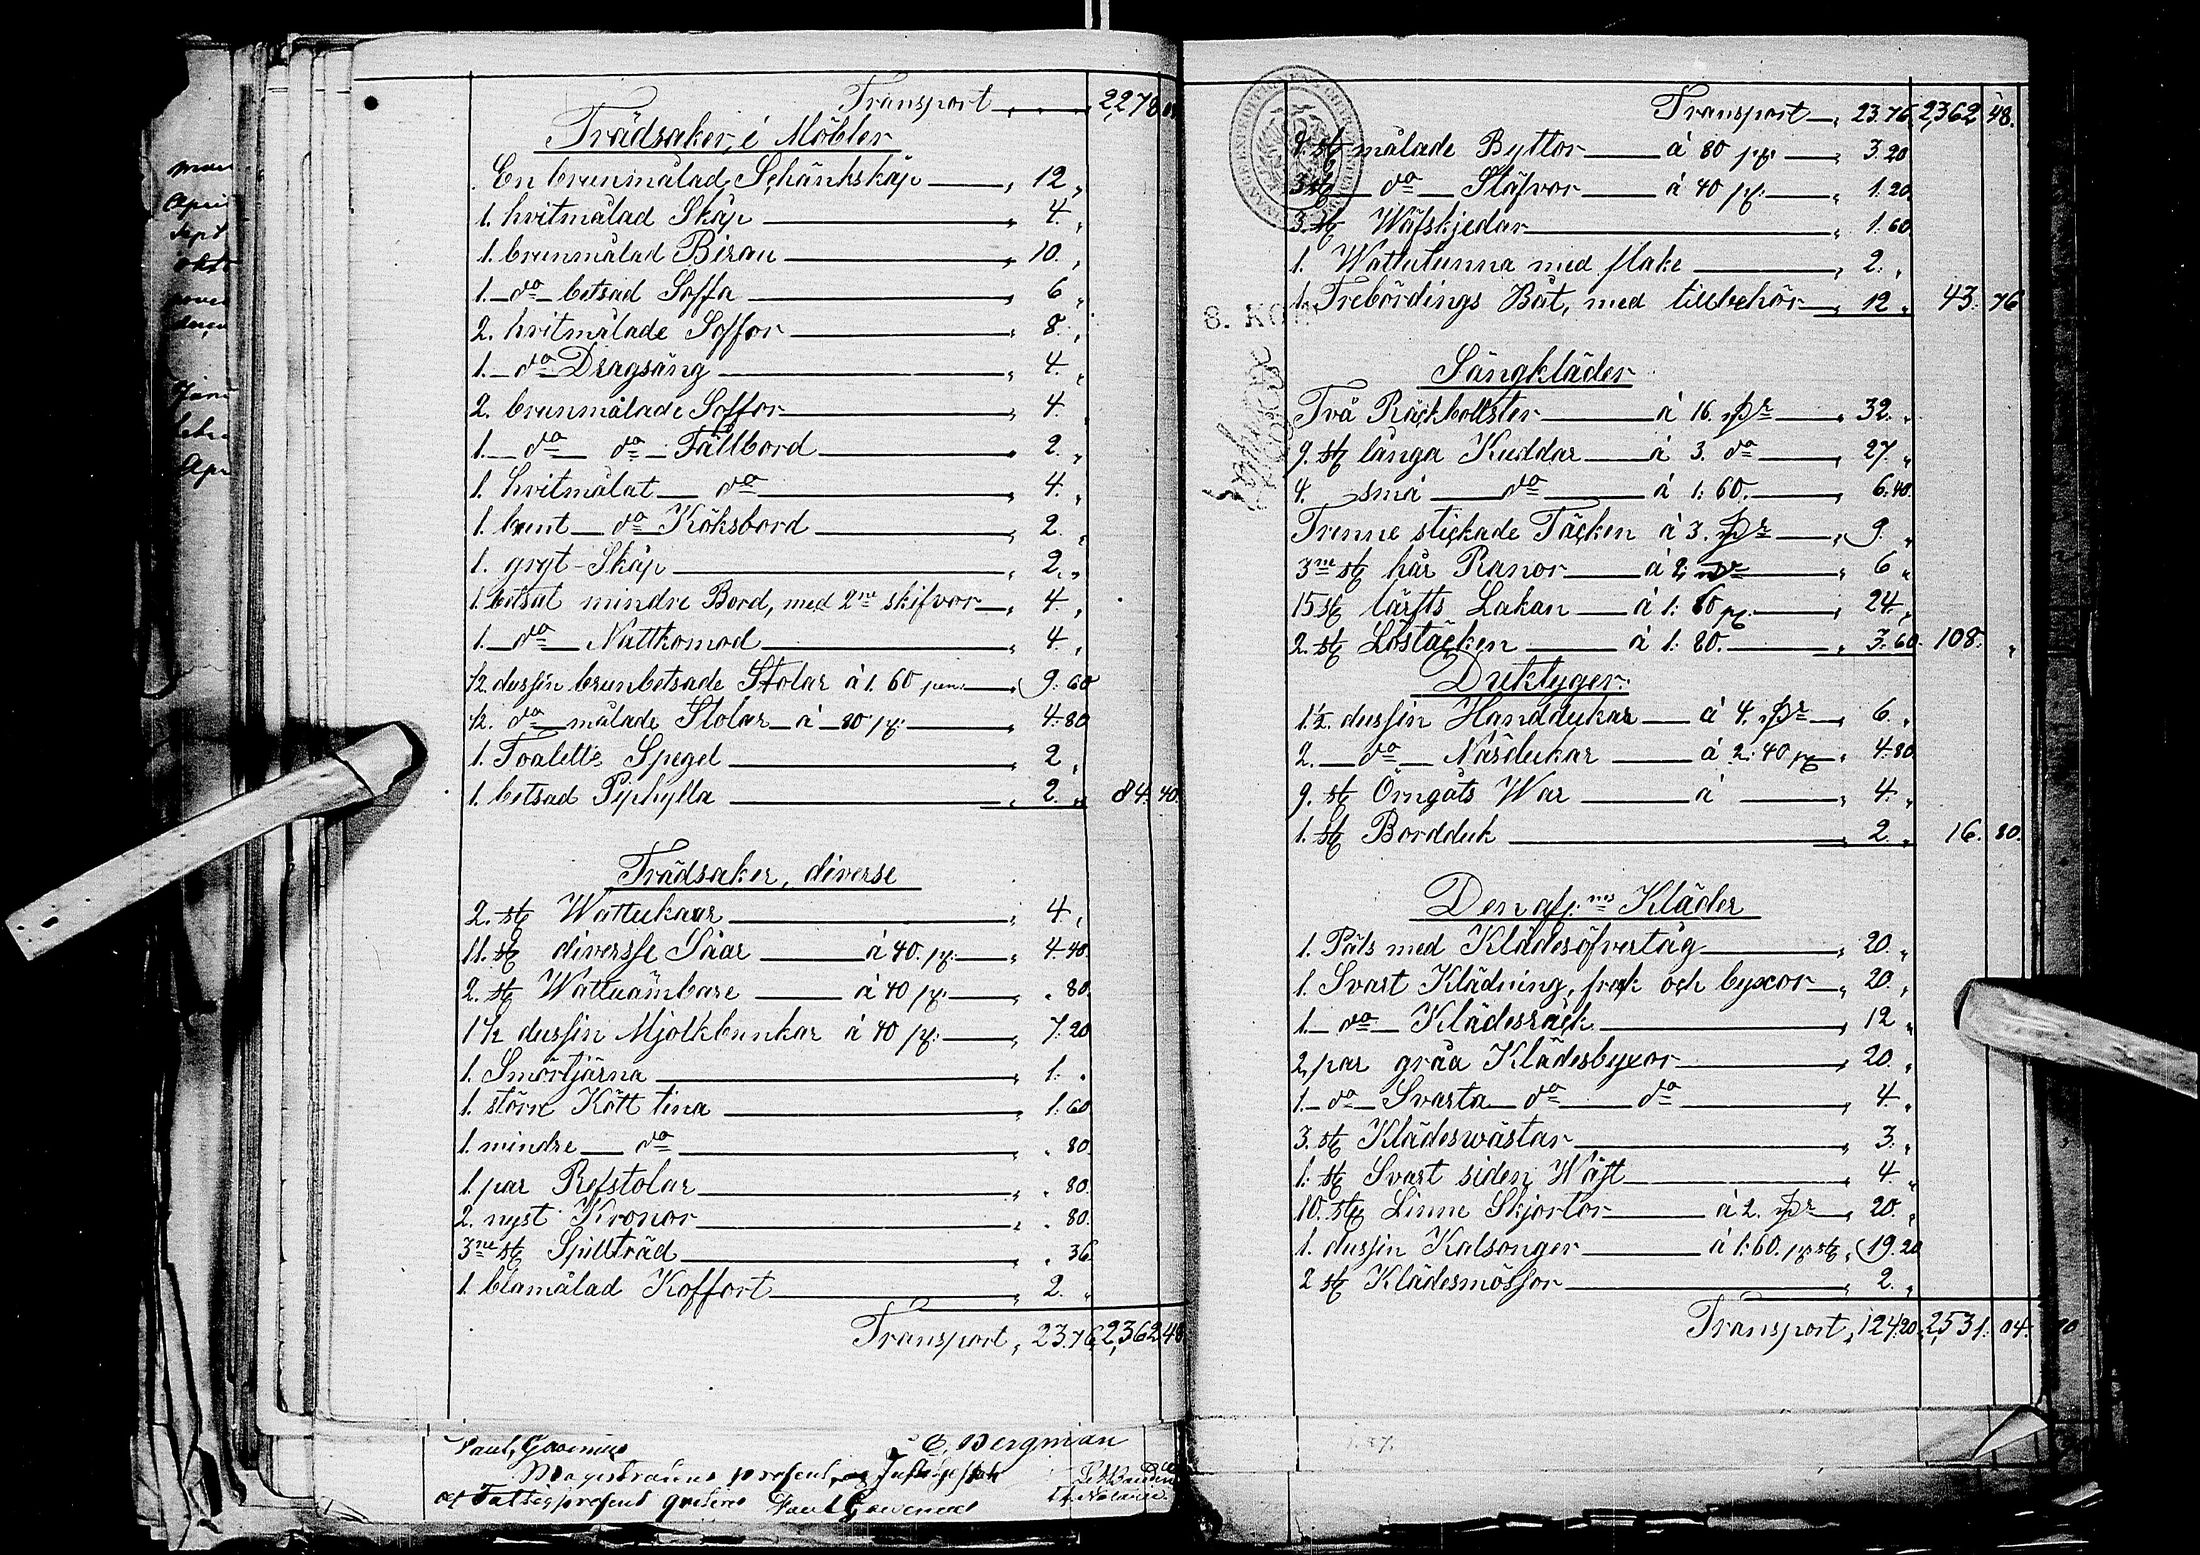 Transport 2,278 08
Trädsaker, i Möbler
En brunmålad Schänkskåp 12 "
1. hvitmålad Skåp 4. "
1. brunmålad Birau 10. "
1. do betsad Soffa 6 "
2. hvitmålade Soffor 8 "
1. do Dragsäng 4. "
2. brunmålade Soffor 4. "
1. do do Fällbord 2. "
1. hvitmålat do 4. "
1. brunt do Köksbord 2. "
1. gryt-Skåp 2. "
1. betsat mindre Bord, med 2ne skifvor 4. "
1. do Nattkomod 4. "
1/2 dussin brunbetsade Stolar á 1. 60 pen: 9. 60
1/2 do målade Stolar á 80 p: 4. 80
1. Toalette Spegel 2 "
1. betsad Pyphylla 2. " 84. 40.
Trädsaker, diverse
2. st Wattukaar 4. "
11. st diversse Såar á 40. p: 4. 40
2. st Wattuämbare á 40 p: " 80.
1 1/2 dussin Mjölkbunkar á 40 p: 7. 20
1. Smörtjärna 1. "
1. störe Kött tina 1. 60
1. mindre do " 80.
1. par Refstolar " 80.
2. nyst Kronor " 80.
3ne st Spillträd " 36
1. blamålad Koffort 2. "
Transport, 23.76 2,362 48
C. Bergman
Transport 23.76. 2,362 48.
4. st målade Byttor á 80 p: 3. 20
3 st do Stäfvor á 40 p: 1. 20
3. st Wäfskjedar 1. 60
1. Wattutunna med flake 2. "
1. Trebördings Båt, med tillbehör 12 " 43. 76
8. KO
Sängkläder
Två Räckbollster á 16. 32. "
9. st långa Kuddar á 3. do 27. "
4. små do á 1. 60. 6. 40.
Trenne stickade Täcken á 3. 9. "
3ne st hår Ranor á 2. 6 "
15 st lärfts Lakan á 1. 60 p. 24. "
2. st Löstäcken á 1. 80. 3. 60 108. "
Duktyger.
1 1/2 dussin Handdukar á 4. 6. "
2. do Näsdukar á 2. 40 p 4. 80
9. st Örngåts War á 4. "
1. st Bordduk 2. " 16. 80.
Den afl:nes Kläder
1. Päls med Klädesöfvertåg 20. "
1. Svart Klädning, frak och byxor 20. "
1. do Klädesräck 12 "
2, par gråa Klädesbyxor 20. "
1. do Svarta do do 4. "
3. st Klädeswästar 3. "
1. st Svart siden Wäst 4. "
10. st Linne Skjortor á 2. 20. "
1. dussin Kalsonger á 1. 60. p st 19. 20
2 st Klädesmössor 2. "
Transport, 124.20 2,531. 04.